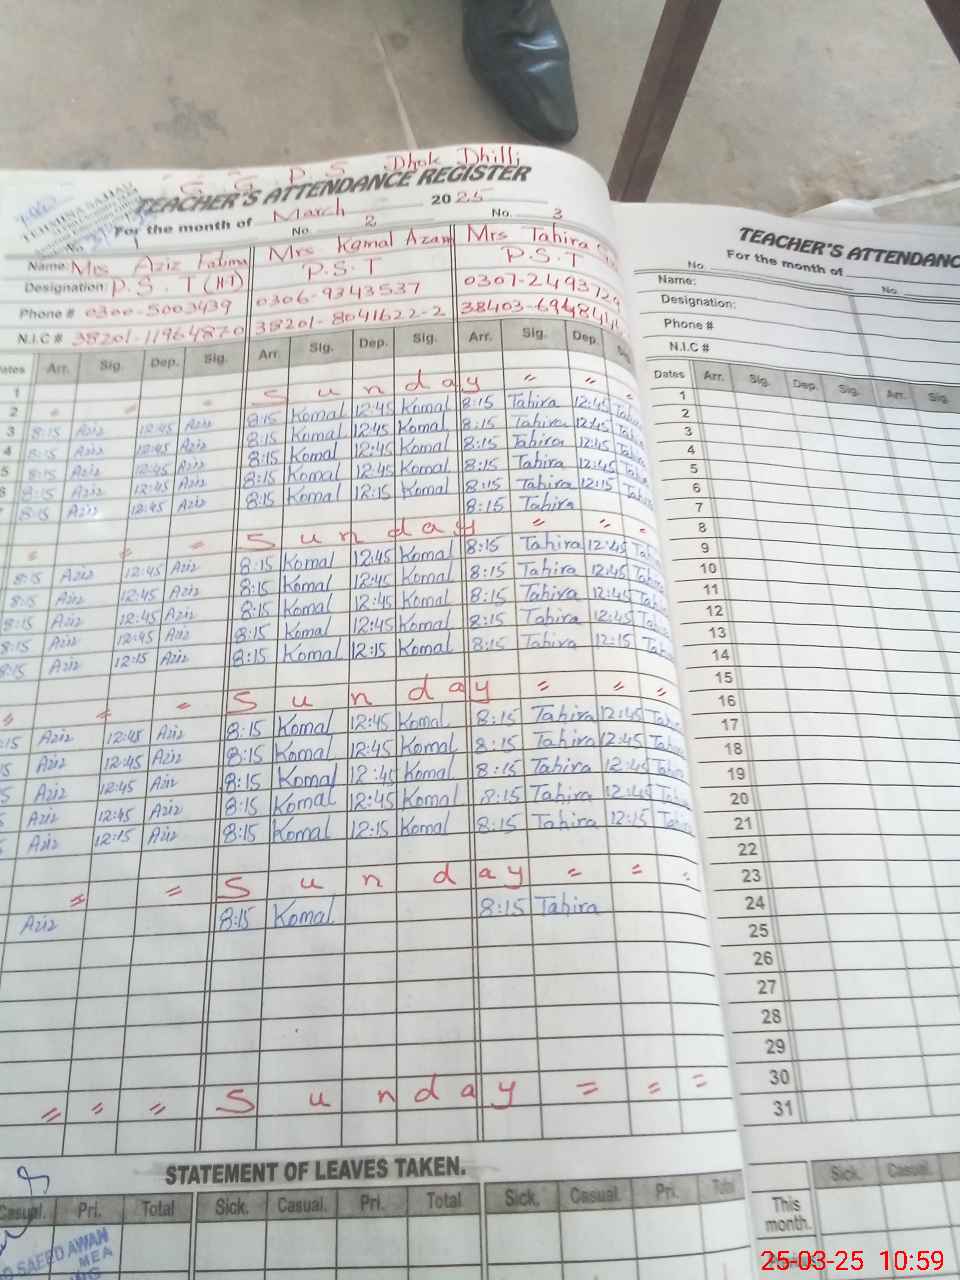 G. G. P. S Dhok Dhilli
TEACHER'S ATTENDANCE REGISTER
For the month of March 2025
No. 1 No. 2 No. 3
Name: Mrs Aziz Fatima Mrs Komal Azam Mrs Tahira
Designation: P.S.T (H.T) P.S.T P.S.T
Phone # 0300-5003439 0306-9343537 0307-2493729
N.I.C # 38201-1196487-0 38201-8041622-2 38403-
Dates Arr. Sig. Dep. Sig. Arr. Sig. Dep. Sig. Arr. Sig. Dep.
1
2 Sunday
3 8:15 Aziz 12:45 Aziz 8:15 Komal 12:45 Komal 8:15 Tahira 12:45 Tahira
4 8:15 Aziz 12:45 Aziz 8:15 Komal 12:45 Komal 8:15 Tahira 12:45 Tahira
5 8:15 Aziz 12:45 Aziz 8:15 Komal 12:45 Komal 8:15 Tahira 12:45 Tahira
6 8:15 Aziz 12:45 Aziz 8:15 Komal 12:45 Komal 8:15 Tahira 12:45 Tahira
7 8:15 Aziz 12:45 Aziz 8:15 Komal 12:15 Komal 8:15 Tahira 12:15 Tahira
8:15 Tahira
Sunday
8:15 Aziz 12:45 Aziz 8:15 Komal 12:45 Komal 8:15 Tahira 12:45
8:15 Aziz 12:45 Aziz 8:15 Komal 12:45 Komal 8:15 Tahira 12:45
8:15 Aziz 12:45 Aziz 8:15 Komal 12:45 Komal 8:15 Tahira 12:45
8:15 Aziz 12:45 Aziz 8:15 Komal 12:45 Komal 8:15 Tahira 12:45
8:15 Aziz 12:15 Aziz 8:15 Komal 12:15 Komal 8:15 Tahira 12:15
Sunday
Aziz 12:45 Aziz 8:15 Komal 12:45 Komal 8:15 Tahira 12:45
Aziz 12:45 Aziz 8:15 Komal 12:45 Komal 8:15 Tahira 12:45
Aziz 12:45 Aziz 8:15 Komal 12:45 Komal 8:15 Tahira 12:45
Aziz 12:45 Aziz 8:15 Komal 12:45 Komal 8:15 Tahira 12:45
Aziz 12:15 Aziz 8:15 Komal 12:15 Komal 8:15 Tahira 12:15
Sunday
Aziz 8:15 Komal 8:15 Tahira
Sunday
STATEMENT OF LEAVES TAKEN.
Casual. Pri. Total Sick. Casual. Pri. Total Sick. Casual. Pri. Total
SAEED AWAN
MEA
TEACHER'S ATTENDANC
For the month of
No. No.
Name:
Designation:
Phone #
N.I.C #
Dates Arr. Sig. Dep. Sig. Arr. Sig.
1
2
3
4
5
6
7
8
9
10
11
12
13
14
15
16
17
18
19
20
21
22
23
24
25
26
27
28
29
30
31
Sick. Casual.
This
month.
25-03-25 10:59